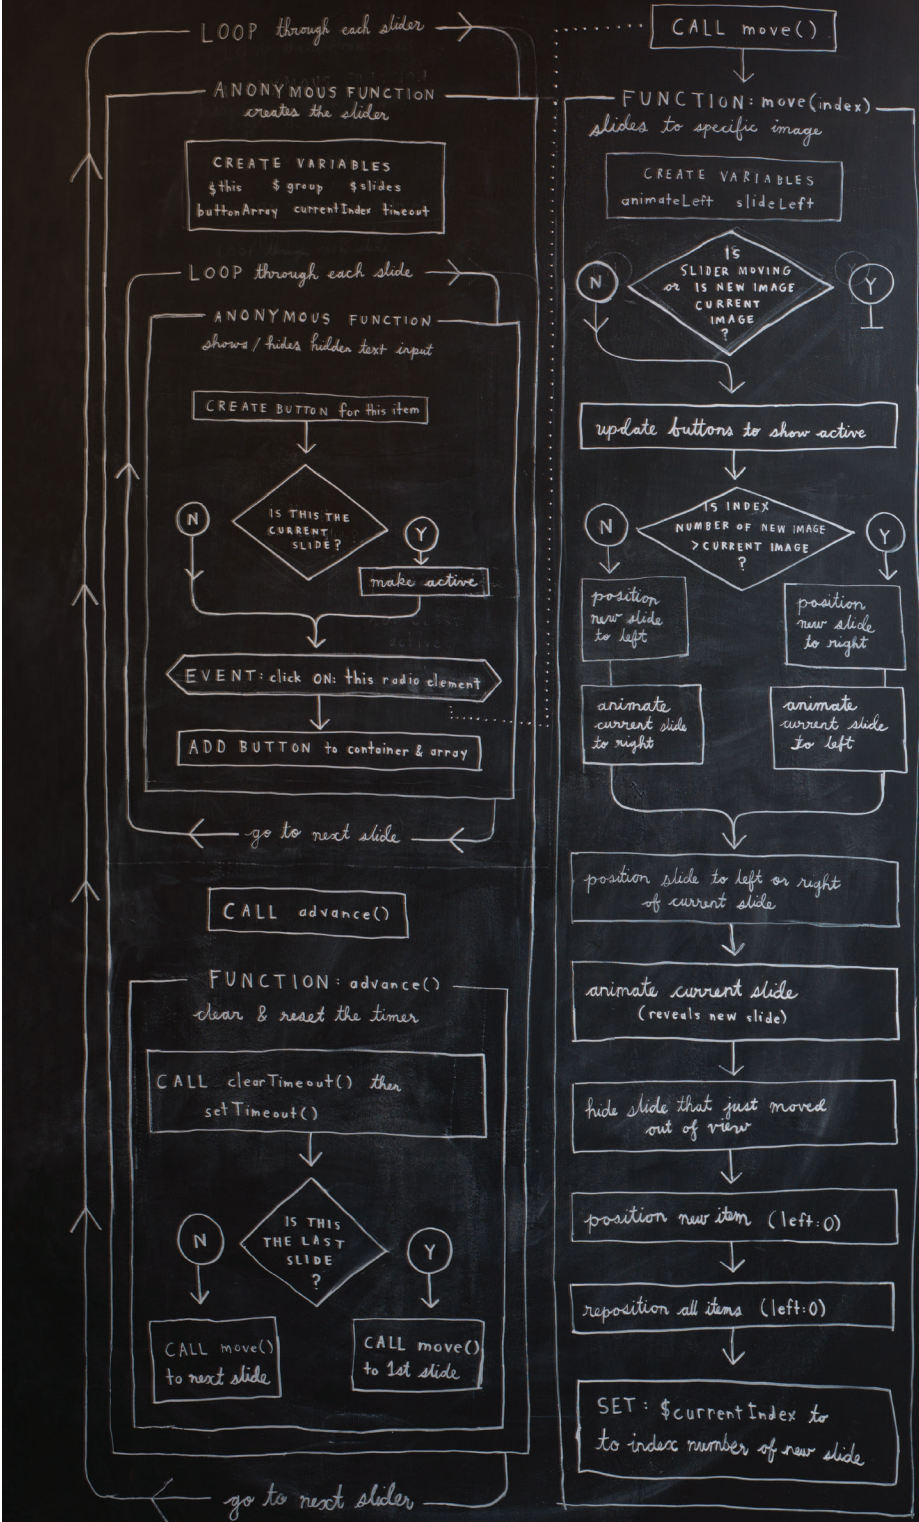 LOOP through each slider
ANONYMOUS FUNCTION
creates the slider
CREATE VARIABLES
$this $group $slides
buttonArray currentIndex timeout
LOOP through each slide
ANONYMOUS FUNCTION
shows/hides hidden text input
CREATE BUTTON for this item
IS THIS THE
CURRENT
SLIDE?
N
Y
make active
EVENT: click ON: this radio element
ADD BUTTON to container & array
go to next slide
CALL advance()
FUNCTION: advance()
clear & reset the timer
CALL clearTimeout() then
setTimeout()
IS THIS
THE LAST
SLIDE
?
N
Y
CALL move()
to next slide
CALL move()
to 1st slide
go to next slider
CALL move()
FUNCTION: move(index)
slides to specific image
CREATE VARIABLES
animateLeft slideLeft
IS
SLIDER MOVING
or IS NEW IMAGE
CURRENT
IMAGE
?
N
Y
update buttons to show active
IS INDEX
NUMBER OF NEW IMAGE
>CURRENT IMAGE
?
N
Y
position
new slide
to left
position
new slide
to right
animate
current slide
to right
animate
current slide
to left
position slide to left or right
of current slide
animate current slide
(reveals new slide)
hide slide that just moved
out of view
position new item (left:0)
reposition all items (left:0)
SET: $currentIndex to
to index number of new slide